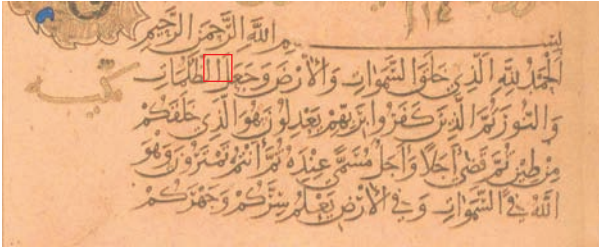 بِسْمِ اللَّهِ الرَّحْمَنِ الرَّحِيمِ
الْحَمْدُ لِلَّهِ الَّذِي خَلَقَ السَّمَوَاتِ وَالْأَرْضَ وَجَعَلَ الظُّلُمَاتِ
وَالنُّورَ ثُمَّ الَّذِينَ كَفَرُوا بِرَبِّهِمْ يَعْدِلُونَ هُوَ الَّذِي خَلَقَكُمْ
مِنْ طِينٍ ثُمَّ قَضَى أَجَلًا وَأَجَلٌ مُسَمًّى عِنْدَهُ ثُمَّ أَنْتُمْ تَمْتَرُونَ وَهُوَ
اللَّهُ فِي السَّمَوَاتِ وَفِي الْأَرْضِ يَعْلَمُ سِرَّكُمْ وَجَهْرَكُمْ